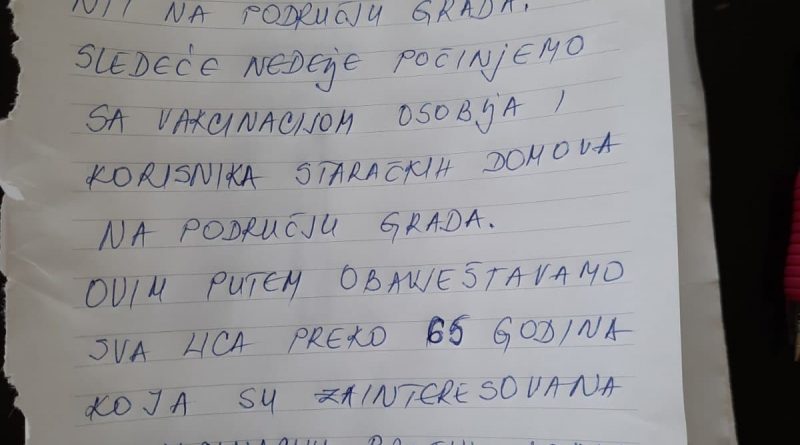 NA PODRUČJU GRADA.
SLEDEĆE NEDELJE POČINJEMO
SA VAKCINACIJOM OSOBLJA I
KORISNIKA STARAČKIH DOMOVA
NA PODRUČJU GRADA.
OVIM PUTEM OBAVJEŠTAVAMO
SVA LICA PREKO 65 GODINA
KOJA SU ZAINTERESOVANA